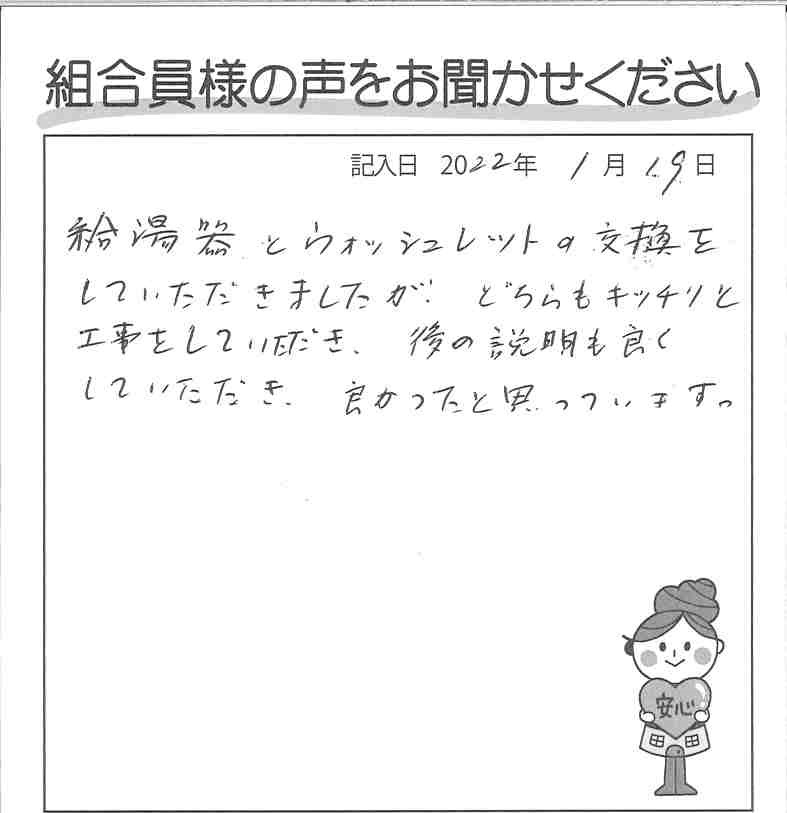 組合員様の声をお聞かせください
記入日 2022年 1月19日
給湯器とウォッシュレットの交換を
していただきましたが、どちらもキッチリと
工事をしていただき、後の説明も良く
していただき、良かったと思っています。
安心